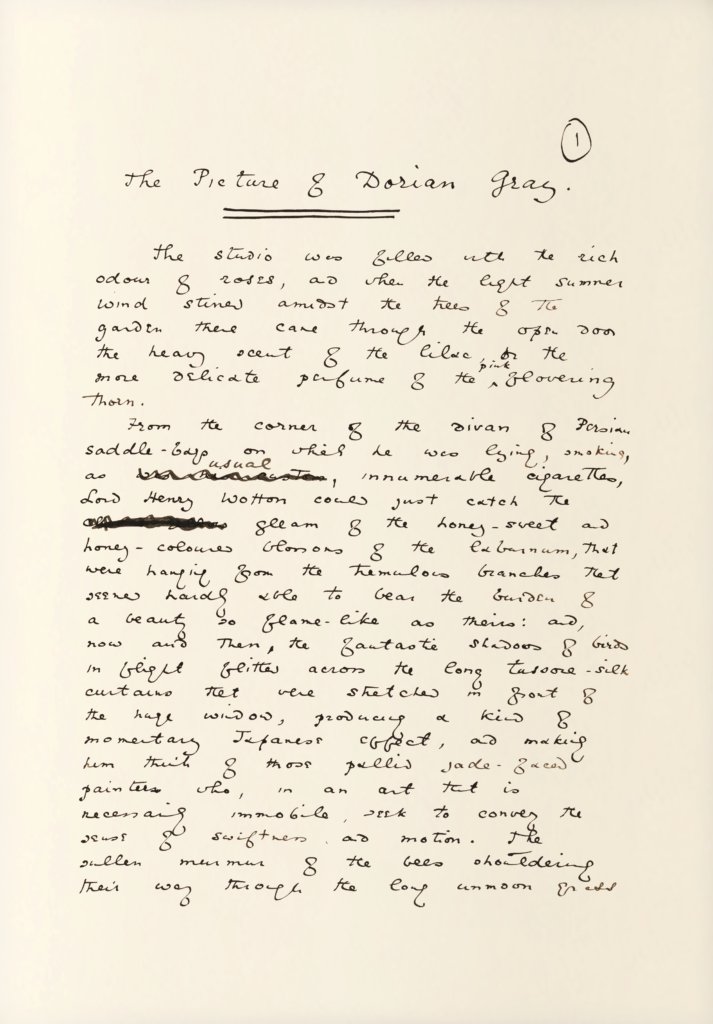 1
The Picture of Dorian Gray.
The studio was filled with the rich
odour of roses, and when the light summer
wind stirred amidst the trees of the
garden there came through the open door
the heavy scent of the lilac, or the
pink
more delicate perfume of the ^ flowering
thorn.
From the corner of the divan of Persian
saddle-bags on which he was lying, smoking,
usual
as , innumerable cigarettes,
Lord Henry Wotton could just catch the
gleam of the honey-sweet and
honey-coloured blossoms of the laburnum, that
were hanging from the tremulous branches that
seemed hardly able to bear the burden of
a beauty so flame-like as theirs: and,
now and then, the fantastic shadows of birds
in flight flitted across the long tussore-silk
curtains that were stretched in front of
the huge window, producing a kind of
momentary Japanese effect, and making
him think of those pallid jade-faced
painters who, in an art that is
necessarily immobile, seek to convey the
sense of swiftness and motion. The
sullen murmur of the bees shouldering
their way through the long unmown grass